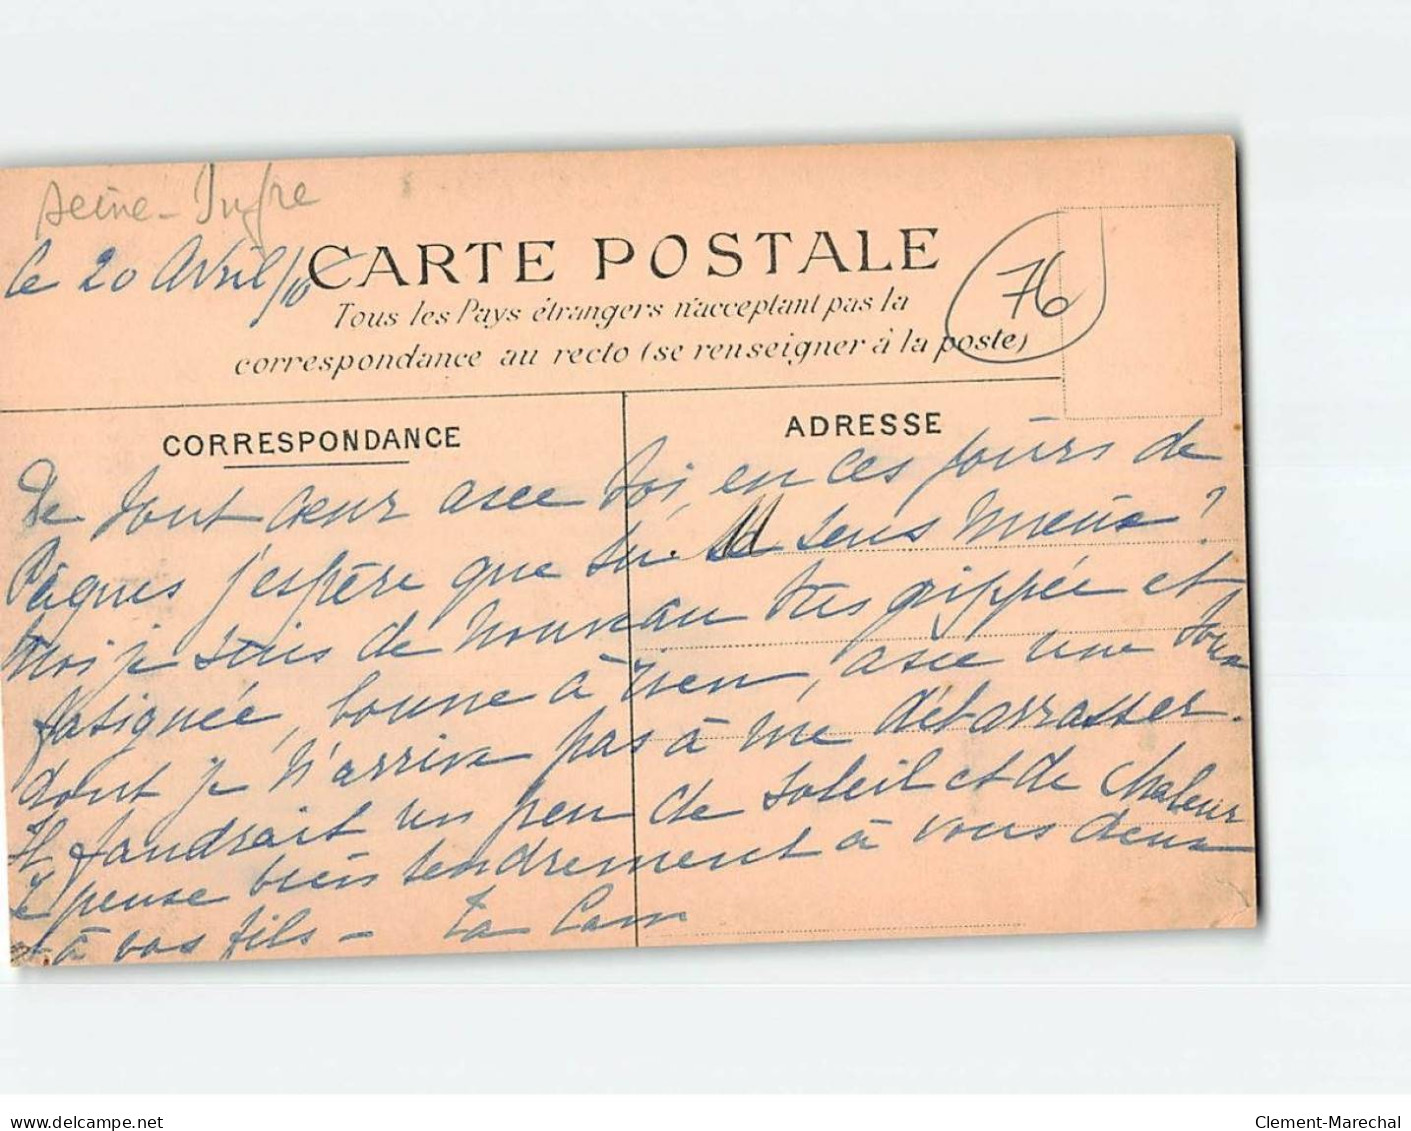 Seine-Infre
le 20 Avril/10
CARTE POSTALE
Tous les Pays étrangers n'acceptant pas la
correspondance au recto (se renseigner à la poste)
76
CORRESPONDANCE
ADRESSE
De tout cœur avec toi, en ces jours de
Pâques j'espère que tu te sens mieux?
Moi je suis de nouveau très grippée et
fatiguée, bonne à rien, avec une toux
dont je n'arrive pas à me débarrasser.
Il faudrait un peu de soleil et de chaleur
Je pense bien tendrement à vous deux
à vos fils - Ta
delcampe.net
Clement-Marechal